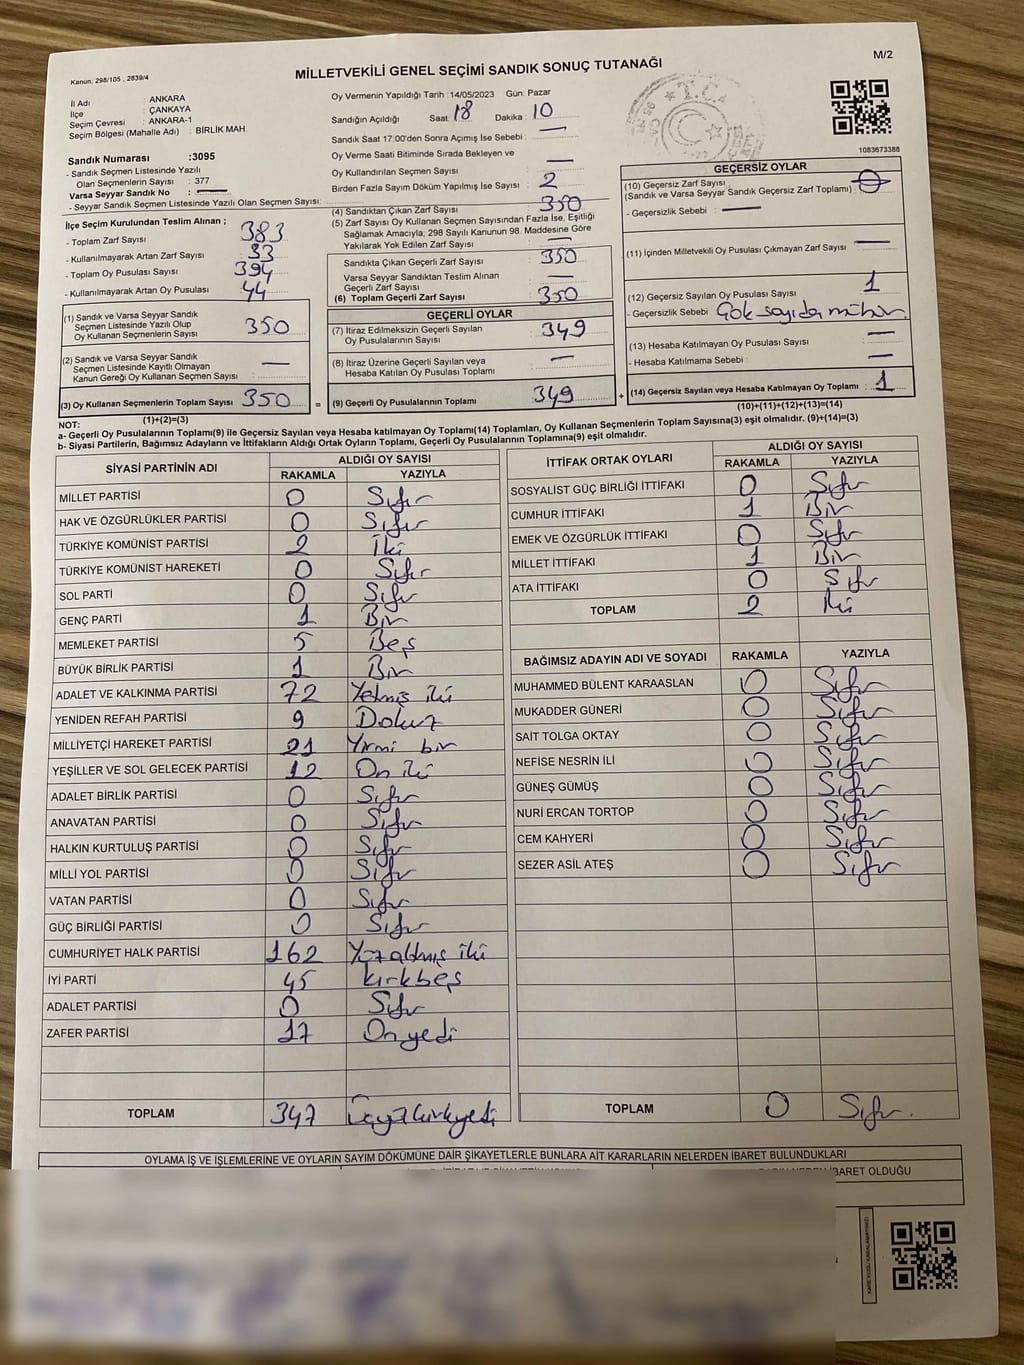 M/2
Kanun, 298/105 , 2839/4
MİLLETVEKİLİ GENEL SEÇİMİ SANDIK SONUÇ TUTANAĞI
İl Adı : ANKARA
İlçe : ÇANKAYA
Seçim Çevresi : ANKARA-1
Seçim Bölgesi (Mahalle Adı) : BİRLİK MAH.
Sandık Numarası :3095
- Sandık Seçmen Listesinde Yazılı
Olan Seçmenlerin Sayısı : 377
Varsa Seyyar Sandık No : —
- Seyyar Sandık Seçmen Listesinde Yazılı Olan Seçmen Sayısı:
İlçe Seçim Kurulundan Teslim Alınan ;
- Toplam Zarf Sayısı : 383
- Kullanılmayarak Artan Zarf Sayısı : 33
- Toplam Oy Pusulası Sayısı : 394
- Kullanılmayarak Artan Oy Pusulası : 44
(1) Sandık ve Varsa Seyyar Sandık
Seçmen Listesinde Yazılı Olup
Oy Kullanan Seçmenlerin Sayısı : 350
(2) Sandık ve Varsa Seyyar Sandık
Seçmen Listesinde Kayıtlı Olmayan
Kanun Gereği Oy Kullanan Seçmen Sayısı : —
(3) Oy Kullanan Seçmenlerin Toplam Sayısı 350
(1)+(2)=(3)
Oy Vermenin Yapıldığı Tarih : 14/05/2023 Gün: Pazar
Sandığın Açıldığı Saat : 18 Dakika : 10
Sandık Saat 17:00'den Sonra Açımış İse Sebebi : —
Oy Verme Saati Bitiminde Sırada Bekleyen ve
Oy Kullandırılan Seçmen Sayısı : —
Birden Fazla Sayım Döküm Yapılmış İse Sayısı : 2
(4) Sandıktan Çıkan Zarf Sayısı : 350
(5) Zarf Sayısı Oy Kullanan Seçmen Sayısından Fazla İse, Eşitliği
Sağlamak Amacıyla; 298 Sayılı Kanunun 98. Maddesine Göre
Yakılarak Yok Edilen Zarf Sayısı : —
Sandıkta Çıkan Geçerli Zarf Sayısı : 350
Varsa Seyyar Sandıktan Teslim Alınan
Geçerli Zarf Sayısı : —
(6) Toplam Geçerli Zarf Sayısı : 350
GEÇERLİ OYLAR
(7) İtiraz Edilmeksizin Geçerli Sayılan
Oy Pusulalarının Sayısı : 349
(8) İtiraz Üzerine Geçerli Sayılan veya
Hesaba Katılan Oy Pusulası Toplamı : —
= (9) Geçerli Oy Pusulalarının Toplamı : 349
1083673388
GEÇERSİZ OYLAR
(10) Geçersiz Zarf Sayısı
(Sandık ve Varsa Seyyar Sandık Geçersiz Zarf Toplamı) : 0
- Geçersizlik Sebebi : —
(11) İçinden Milletvekili Oy Pusulası Çıkmayan Zarf Sayısı : —
(12) Geçersiz Sayılan Oy Pusulası Sayısı : 1
- Geçersizlik Sebebi : Çok sayıda mühür.
(13) Hesaba Katılmayan Oy Pusulası Sayısı : —
- Hesaba Katılmama Sebebi : —
+ (14) Geçersiz Sayılan veya Hesaba Katılmayan Oy Toplamı : 1
(10)+(11)+(12)+(13)=(14)
NOT:
a- Geçerli Oy Pusulalarının Toplamı(9) ile Geçersiz Sayılan veya Hesaba katılmayan Oy Toplamı(14) Toplamları, Oy Kullanan Seçmenlerin Toplam Sayısına(3) eşit olmalıdır. (9)+(14)=(3)
b- Siyasi Partilerin, Bağımsız Adayların ve İttifakların Aldığı Ortak Oyların Toplamı, Geçerli Oy Pusulalarının Toplamına(9) eşit olmalıdır.
SİYASİ PARTİNİN ADI ALDIĞI OY SAYISI
RAKAMLA YAZIYLA
MİLLET PARTİSİ 0 Sıfır
HAK VE ÖZGÜRLÜKLER PARTİSİ 0 Sıfır
TÜRKİYE KOMÜNİST PARTİSİ 2 İki
TÜRKİYE KOMÜNİST HAREKETİ 0 Sıfır
SOL PARTİ 0 Sıfır
GENÇ PARTİ 1 Bir
MEMLEKET PARTİSİ 5 Beş
BÜYÜK BİRLİK PARTİSİ 1 Bir
ADALET VE KALKINMA PARTİSİ 72 Yetmiş iki
YENİDEN REFAH PARTİSİ 9 Dokuz
MİLLİYETÇİ HAREKET PARTİSİ 21 Yirmi bir
YEŞİLLER VE SOL GELECEK PARTİSİ 12 On iki
ADALET BİRLİK PARTİSİ 0 Sıfır
ANAVATAN PARTİSİ 0 Sıfır
HALKIN KURTULUŞ PARTİSİ 0 Sıfır
MİLLİ YOL PARTİSİ 0 Sıfır
VATAN PARTİSİ 0 Sıfır
GÜÇ BİRLİĞİ PARTİSİ 0 Sıfır
CUMHURİYET HALK PARTİSİ 162 Yüzaltmış iki
İYİ PARTİ 45 kırkbeş
ADALET PARTİSİ 0 Sıfır
ZAFER PARTİSİ 17 Onyedi
TOPLAM 347 Üçyüzkırkyedi
İTTİFAK ORTAK OYLARI ALDIĞI OY SAYISI
RAKAMLA YAZIYLA
SOSYALİST GÜÇ BİRLİĞİ İTTİFAKI 0 Sıfır
CUMHUR İTTİFAKI 1 Bir
EMEK VE ÖZGÜRLÜK İTTİFAKI 0 Sıfır
MİLLET İTTİFAKI 1 Bir
ATA İTTİFAKI 0 Sıfır
TOPLAM 2 İki
BAĞIMSIZ ADAYIN ADI VE SOYADI RAKAMLA YAZIYLA
MUHAMMED BÜLENT KARAASLAN 0 Sıfır
MUKADDER GÜNERİ 0 Sıfır
SAİT TOLGA OKTAY 0 Sıfır
NEFİSE NESRİN İLİ 0 Sıfır
GÜNEŞ GÜMÜŞ 0 Sıfır
NURİ ERCAN TORTOP 0 Sıfır
CEM KAHYERİ 0 Sıfır
SEZER ASİL ATEŞ 0 Sıfır
TOPLAM 0 Sıfır.
OYLAMA İŞ VE İŞLEMLERİNE VE OYLARIN SAYIM DÖKÜMÜNE DAİR ŞİKAYETLERLE BUNLARA AİT KARARLARIN NELERDEN İBARET BULUNDUKLARI
İBARET OLDUĞU
KARE KODU KARALAMAYINIZ